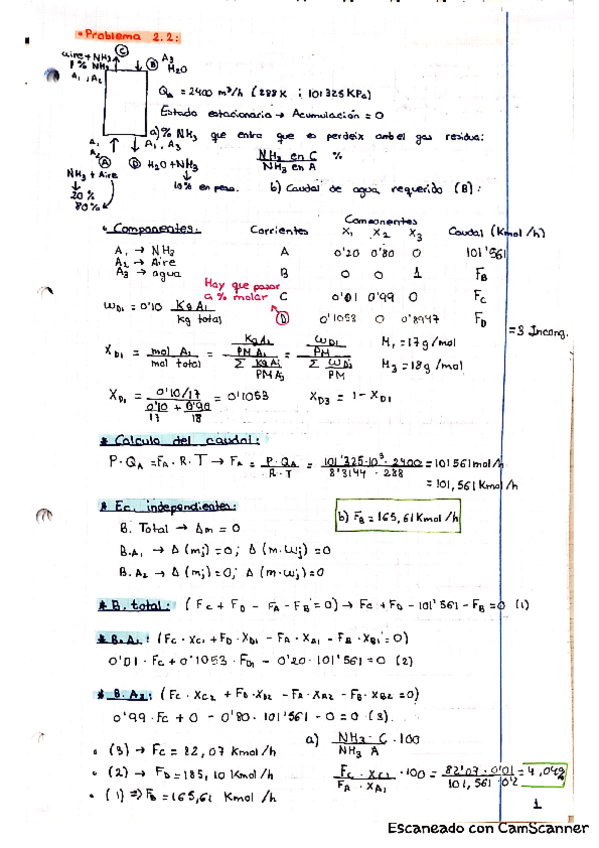 • Problema 2.2:
aire + NH₃ Ⓒ
1% NH₃
A₁, A₂
Ⓑ A₃
H₂O
Q_A = 2400 m³/h (288K ; 101325 KPa)
Estado estacionario → Acumulación = 0
a) % NH₃ que entra que es perdeix amb el gas residua:
NH₃ en C / NH₃ en A %
A₁
A₂
Ⓐ
A₁, A₃
Ⓓ H₂O + NH₃
10% en peso.
NH₃ + Aire
20%
80%
b) Caudal de agua requerido (B):
• Componentes:
A₁ → NH₃
A₂ → Aire
A₃ → agua
Componentes
Corrientes X₁ X₂ X₃ Caudal (Kmol/h)
A 0'20 0'80 0 101'561
B 0 0 1 F_B
C 0'01 0'99 0 F_C
Ⓓ 0'1053 0 0'8947 F_D
= 3 Incog.
Hay que pasar
a % molar
ω_D1 = 0'10 Kg A₁ / Kg total
X_D1 = mol A₁ / mol total = (Kg A₁ / PM A₁) / (Σ Kg Aj / PM Aj) = (ω_D1 / PM) / (Σ ω_Dj / PM)
M₁ = 17 g/mol
M₃ = 18 g/mol
X_D1 = (0'10/17) / (0'10/17 + 0'90/18) = 0'1053
X_D3 = 1 - X_D1
* Calculo del caudal:
P · Q_A = F_A · R · T → F_A = P · Q_A / R · T = 101'325·10³ · 2400 / 8'3144 · 288 = 101561 mol/h
= 101,561 Kmol/h
* Ec. independientes:
B. Total → Δm = 0
B.A₁ → Δ(mⱼ) = 0; Δ(m·ωⱼ) = 0
B.A₂ → Δ(mⱼ) = 0; Δ(m·ωⱼ) = 0
b) F_B = 165,61 Kmol/h
* B. total: (F_C + F_D - F_A - F_B = 0) → F_C + F_D - 101'561 - F_B = 0 (1)
* B.A₁: (F_C · X_C1 + F_D · X_D1 - F_A · X_A1 - F_B · X_B1 = 0)
0'01 · F_C + 0'1053 · F_D - 0'20 · 101'561 = 0 (2)
* B.A₂: (F_C · X_C2 + F_D · X_D2 - F_A · X_A2 - F_B · X_B2 = 0)
0'99 · F_C + 0 - 0'80 · 101'561 - 0 = 0 (3).
• (3) → F_C = 82,07 Kmol/h
• (2) → F_D = 185,10 Kmol/h
• (1) ⇒ F_B = 165,61 Kmol/h
a) NH₃ - C / NH₃ A · 100
F_C · X_C1 / F_A · X_A1 · 100 = 82'07 · 0'01 / 101,561 · 0'2 = 4,04%
1
Escaneado con CamScanner